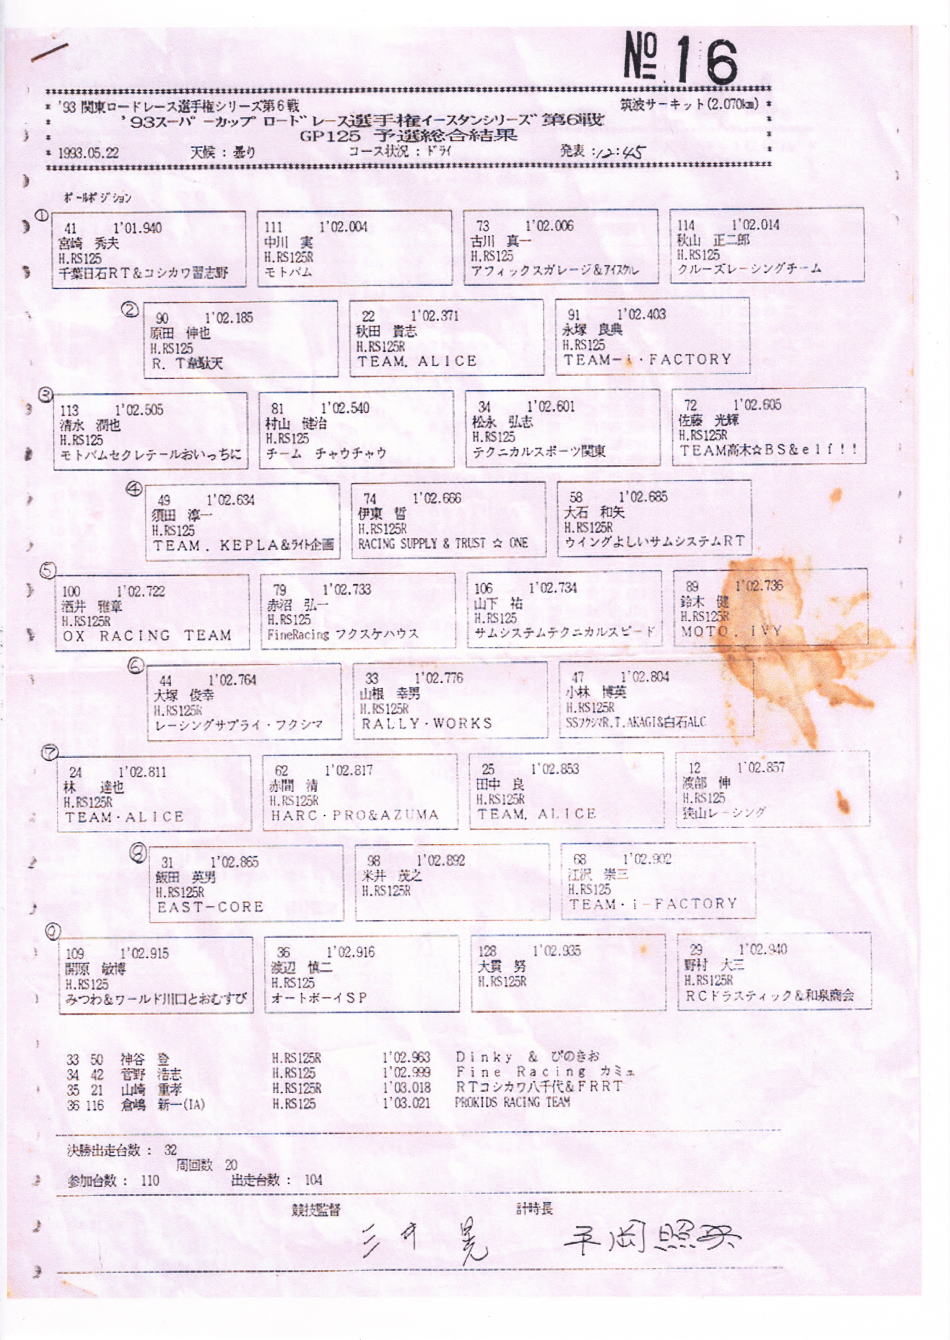 No 16
'93 関東ロードレース選手権シリーズ第6戦 筑波サーキット(2.070km)
'93スーパーカップ ロードレース選手権イースタンシリーズ 第6戦
GP125 予選総合結果
1993.05.22 天候：曇り コース状況：ドライ 発表：12:45
ポールポジション
① 41 1'01.940 111 1'02.004 73 1'02.006 114 1'02.014
宮崎 秀夫 中川 実 古川 真一 秋山 正二郎
H.RS125 H.RS125R H.RS125 H.RS125
千葉日石RT&コシカワ習志野 モトバム アフィックスガレージ& クルーズレーシングチーム
② 90 1'02.185 22 1'02.371 91 1'02.403
原田 伸也 秋田 貴志 永塚 良典
H.RS125 H.RS125R H.RS125
R．T韋駄天 TEAM．ALICE TEAM－i・FACTORY
③ 113 1'02.505 81 1'02.540 34 1'02.601 72 1'02.605
清水 潤也 村山 健治 松永 弘志 佐藤 光輝
H.RS125 H.RS125 H.RS125 H.RS125R
モトバムセクレテールおいっちに チーム チャウチャウ テクニカルスポーツ関東 TEAM高木☆BS&elf！！
④ 49 1'02.634 74 1'02.666 58 1'02.685
須田 淳一 伊東 哲 大石 和矢
H.RS125 H.RS125R H.RS125
TEAM．KEPLA&ライト企画 RACING SUPPLY & TRUST ☆ ONE ウイングよしいサムシステムRT
⑤ 100 1'02.722 79 1'02.733 106 1'02.734 89 1'02.736
酒井 雅章 赤沼 弘一 山下 祐 鈴木 健
H.RS125R H.RS125 H.RS125 H.RS125R
OX RACING TEAM FineRacing フクスケハウス サムシステムテクニカルスピード MOTO．IVY
⑥ 44 1'02.764 33 1'02.776 47 1'02.804
大塚 俊幸 山根 幸男 小林 博英
H.RS125R H.RS125R H.RS125R
レーシングサプライ・フクシマ RALLY・WORKS SSフクシマR.T.AKAGI&白石ALC
⑦ 24 1'02.811 62 1'02.817 25 1'02.853 12 1'02.857
林 達也 赤間 清 田中 良 渡部 伸
H.RS125R H.RS125R H.RS125R H.RS125
TEAM・ALICE HARC・PRO&AZUMA TEAM．ALICE 狭山レーシング
⑧ 31 1'02.865 98 1'02.892 68 1'02.902
飯田 英男 米井 茂之 江沢 崇三
H.RS125R H.RS125R H.RS125
EAST－CORE TEAM・i－FACTORY
⑨ 109 1'02.915 36 1'02.916 128 1'02.935 29 1'02.940
関原 敏博 渡辺 慎二 大貫 努 野村 大三
H.RS125 H.RS125 H.RS125R H.RS125R
みつわ&ワールド川口とおむすび オートボーイSP RCドラスティック&和泉商会
33 50 神谷 登 H.RS125R 1'02.963 Dinky & ぴのきお
34 42 菅野 浩志 H.RS125 1'02.999 Fine Racing カミュ
35 21 山崎 重孝 H.RS125R 1'03.018 RTコシカワ八千代&FRRT
36 116 倉嶋 新一(IA) H.RS125 1'03.021 PROKIDS RACING TEAM
決勝出走台数： 32
周回数 20
参加台数： 110 出走台数： 104
競技監督 計時長
三井 晃 平岡照英